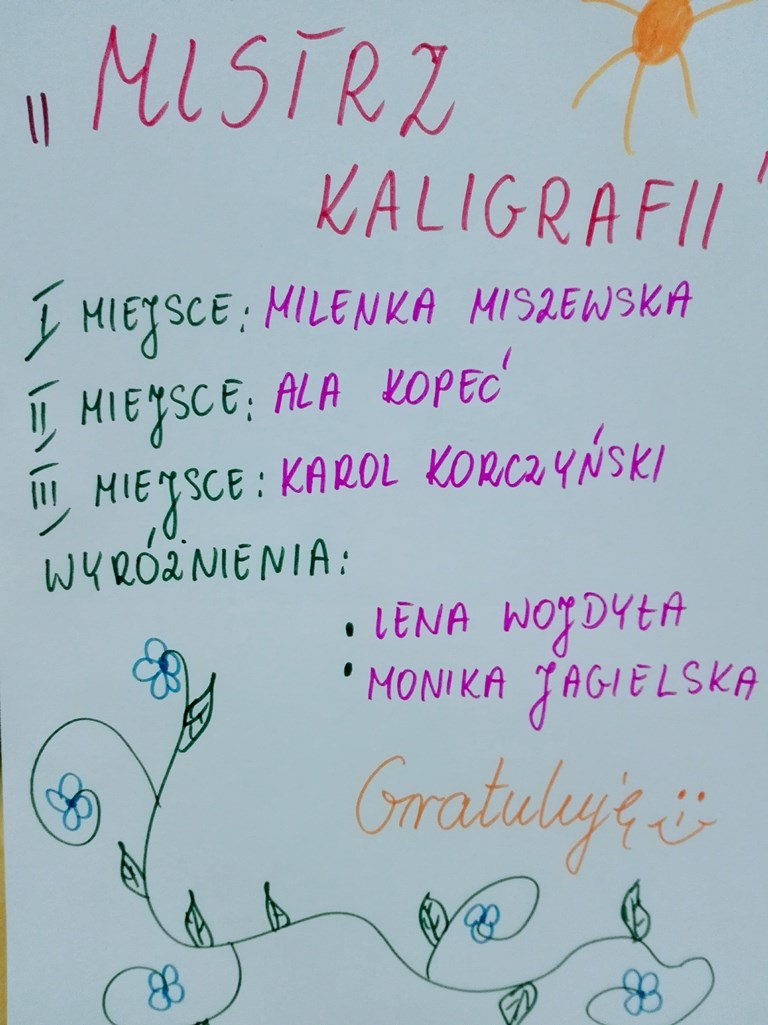 „MISTRZ
KALIGRAFII"
I MIEJSCE: MILENKA MISZEWSKA
II MIEJSCE: ALA KOPEĆ
III MIEJSCE: KAROL KORCZYŃSKI
WYRÓŻNIENIA:
• LENA WOJDYŁA
• MONIKA JAGIELSKA
Gratuluję :)